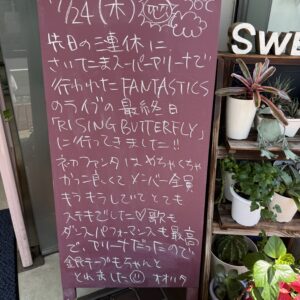 7/24(木)
先日の三連休に
さいたまスーパーアリーナで
行われたFANTASTICS
のライブの最終日
「RISING BUTTERFLY」
に行ってきました!!
初ファンタはめちゃくちゃ
かっこ良くてメンバー全員
キラキラしていてとても
ステキでした♡歌も
ダンスパフォーマンスも最高
で、アリーナだったので
銀テープもちゃんと
とれました☺ オオツタ
SWE